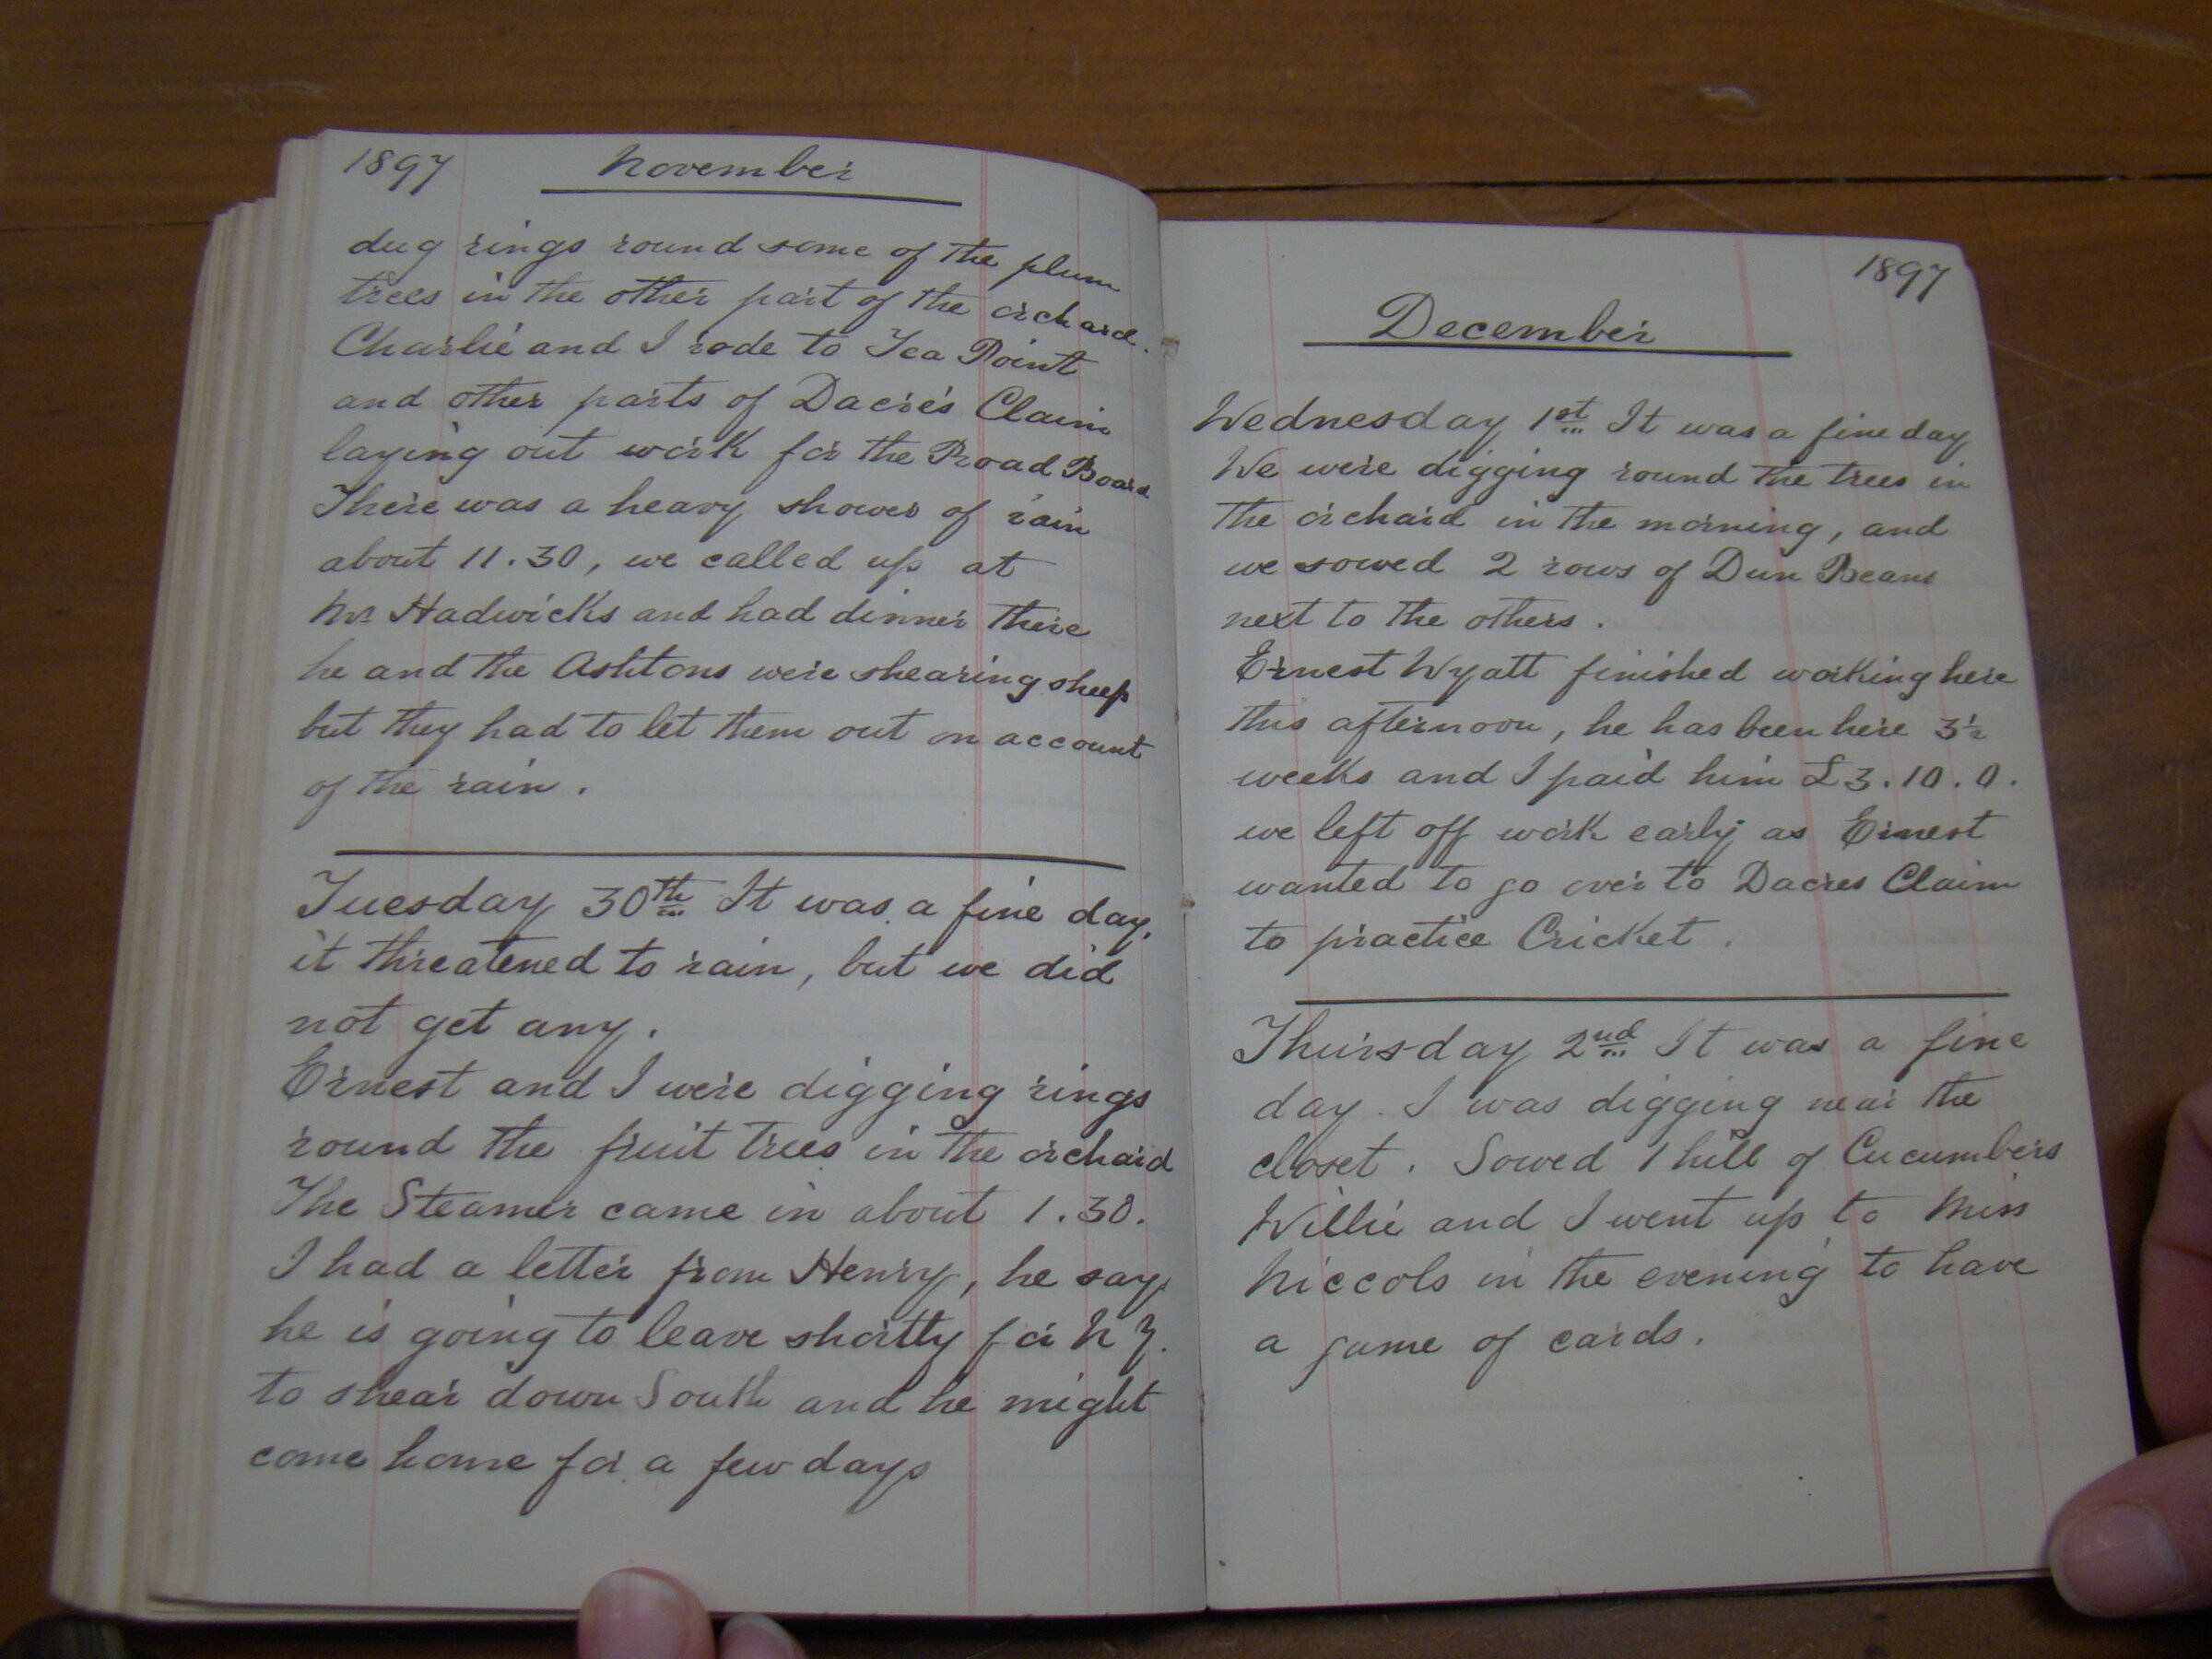 1897 November
dug rings round some of the plum
trees in the other part of the orchard.
Charlie and I rode to Tea Point
and other parts of Dacre's Claim
laying out work for the Road Board
There was a heavy shower of rain
about 11.30, we called up at
Mr Hadwicks and had dinner there
he and the Ashtons were shearing sheep
but they had to let them out on account
of the rain.
Tuesday 30th It was a fine day,
it threatened to rain, but we did
not get any.
Ernest and I were digging rings
round the fruit trees in the orchard
The Steamer came in about 1.30.
I had a letter from Henry, he says
he is going to leave shortly for N Z.
to shear down South and he might
come home for a few days
1897
December
Wednesday 1st It was a fine day
We were digging round the trees in
the orchard in the morning, and
we sowed 2 rows of Dun Beans
next to the others.
Ernest Wyatt finished working here
this afternoon, he has been here 3½
weeks and I paid him £3.10.0.
we left off work early as Ernest
wanted to go over to Dacres Claim
to practice Cricket.
Thursday 2nd It was a fine
day. I was digging near the
closet. Sowed 1 hill of Cucumbers
Willie and I went up to Miss
Niccols in the evening to have
a game of cards.